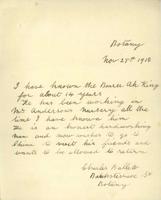 Botany
Nov 25th 1916
I have known the Bearer Ah King
for about 14 years
He has been working in
Mr Andersons Nursery all the
time I have known him
He is an honest hardworking
man and now wishes to go to
China to meet his friends and
wants to be allowed to return
Charles
St
Botany